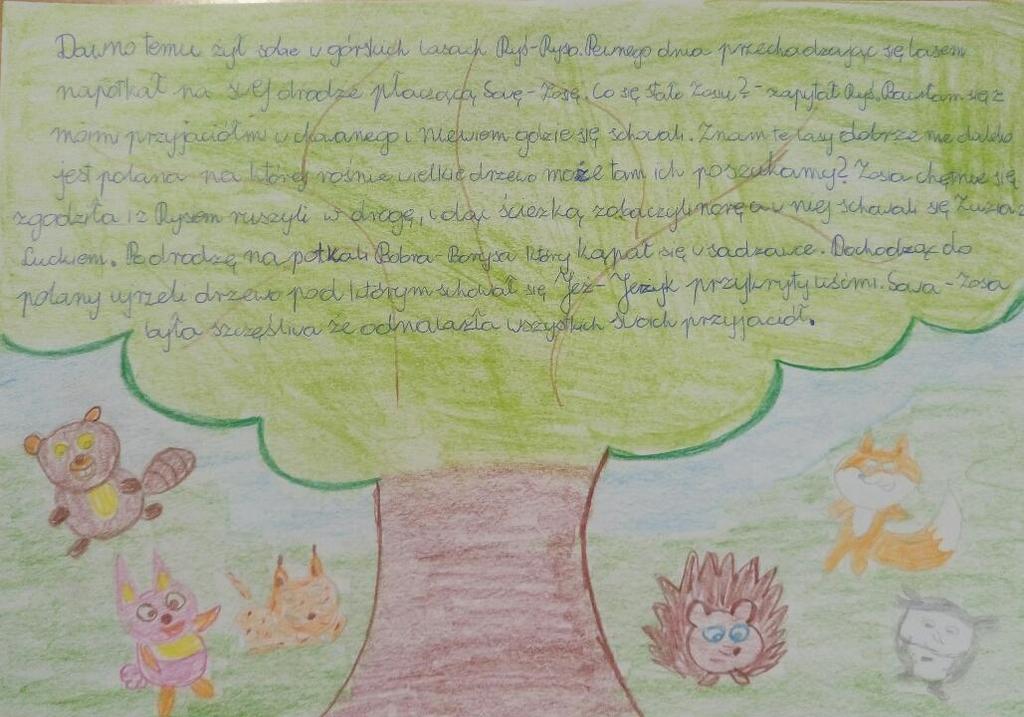 Dawno temu żył sobie w górskich lasach Ryś-Rysio. Pewnego dnia przechadzając się lasem
napotkał na swej drodze płaczącą Sowę-Zosię. Co się stało Zosiu? - zapytał Ryś. Bawiłam się z
moimi przyjaciółmi w chowanego i niewiem gdzie się schowali. Znam te lasy dobrze nie daleko
jest polana na której rośnie wielkie drzewo może tam ich poszukamy? Zosia chętnie się
zgodziła i z Rysem ruszyli w drogę, idąc ścieżką zobaczyli norę a w niej schowali się Zuzia z
Luckiem. Po drodzę napotkali Bobra-Borysa który kąpał się w sadzawce. Dochodząc do
polany ujrzeli drzewo pod którym schował się Jeż-Jeżyk przykryty liśćmi. Sowa-Zosia
była szczęśliwa że odnalazła wszystkich swoich przyjaciół.